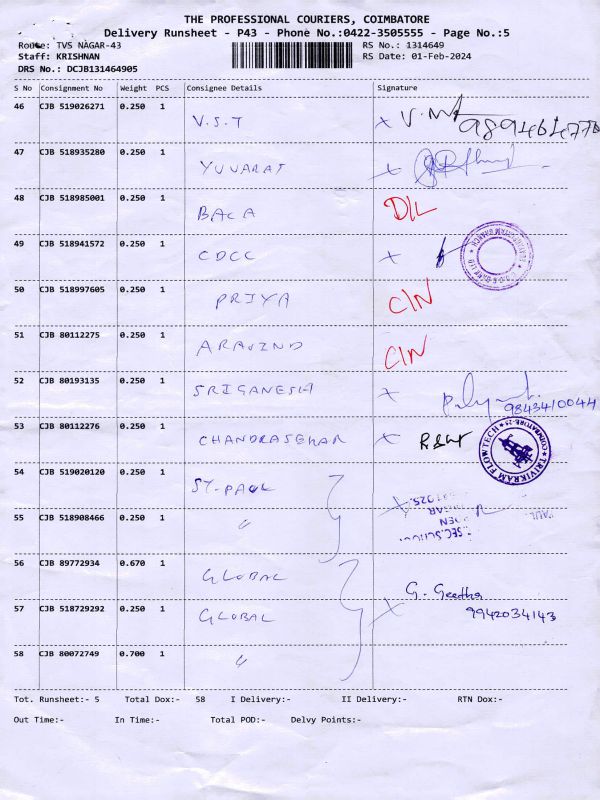 THE PROFESSIONAL COURIERS, COIMBATORE
Delivery Runsheet - P43 - Phone No.:0422-3505555 - Page No.:5
Route: TVS NAGAR-43 RS No.: 1314649
Staff: KRISHNAN RS Date: 01-Feb-2024
DRS No.: DCJB131464905
S No Consignment No Weight PCS Consignee Details Signature
46 CJB 519026271 0.250 1 V.S.T X V.M
47 CJB 518935280 0.250 1 YUVARAJ X
48 CJB 518985001 0.250 1 BACA D/L
49 CJB 518941572 0.250 1 CDCC X
50 CJB 518997605 0.250 1 PRIYA C/N
51 CJB 80112275 0.250 1 ARAVIND C/N
52 CJB 80193135 0.250 1 SRIGANESH X
9843410044
53 CJB 80112276 0.250 1 CHANDRASEKAR X
TRIVIKRAM FLOWTECH COIMBATORE-25
54 CJB 519020120 0.250 1 ST. PAUL X
55 CJB 518908466 0.250 1 "
56 CJB 89772934 0.670 1 GLOBAL G. Geetha
57 CJB 518729292 0.250 1 GLOBAL X 9942034143
58 CJB 80072749 0.700 1 "
Tot. Runsheet:- 5 Total Dox:- 58 I Delivery:- II Delivery:- RTN Dox:-
Out Time:- In Time:- Total POD:- Delvy Points:-